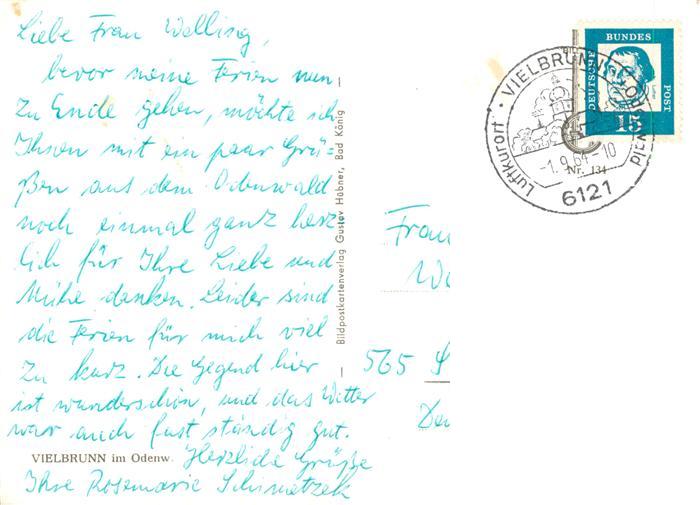 Liebe Frau Welling,
bevor meine Ferien nun
zu Ende gehen, möchte ich
Ihnen mit ein paar Grü=
ßen aus dem Odenwald
noch einmal ganz herz
lich für Ihre Liebe und
Mühe danken. Leider sind
die Ferien für mich viel
zu kurz. Die Gegend hier
ist wunderschön, und das Wetter
war auch fast ständig gut.
VIELBRUNN im Odenw.
Herzliche Grüße
Ihre Rosemarie Schmetzek
Bildpostkartenverlag Gustav Hübner, Bad König
DEUTSCHE BUNDES POST
15
Luftkurort · VIELBRUNN
-1.9.64-10
Nr. 134
6121
Frau
565